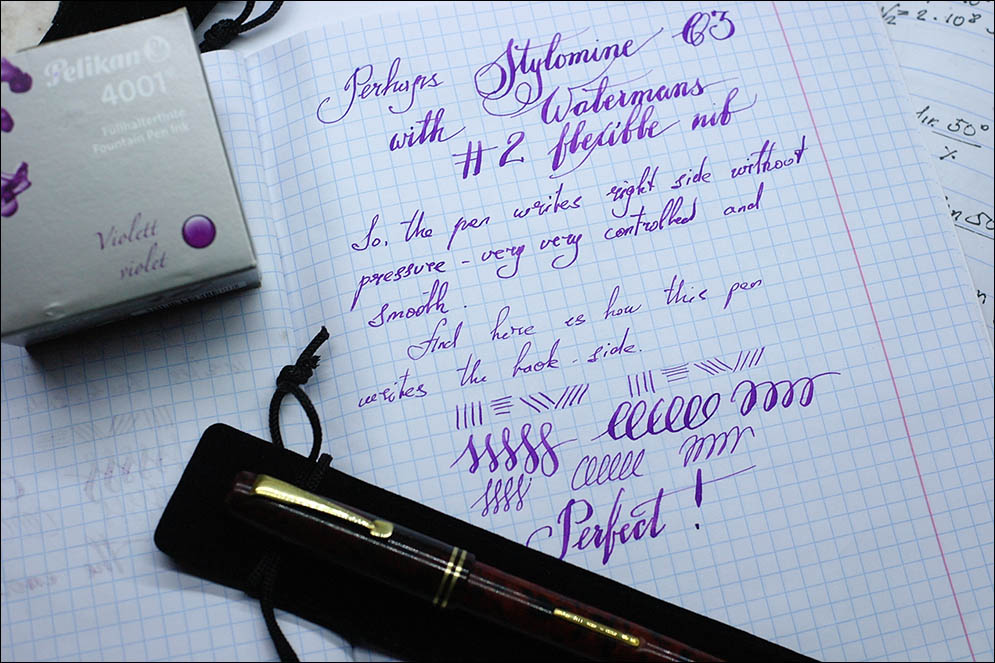 Pelikan
4001
Füllhaltertinte
Fountain Pen Ink
Violett
violet
Perhaps Stylomine
with Watermans
#2 flexible nib
So, the pen writes right side without
pressure - very very controlled and
smooth.
And here is how this pen
writes the back-side.
Perfect!
√2 = 2·10⁸
50°